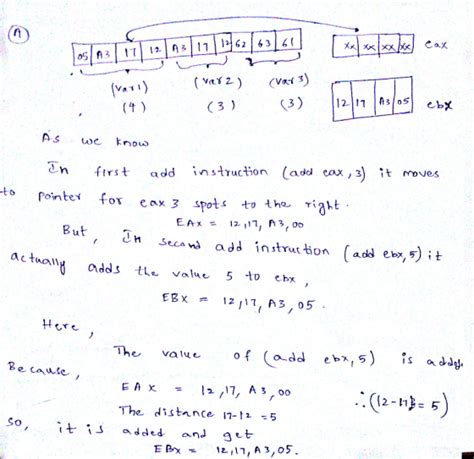 (A)
05 A3 17 12 A3 17 12 62 63 61
xx xx xx xx eax
(var1) (var2) (var3)
(4) (3) (3)
12 17 A3 05 ebx
As we know
In first add instruction (add eax, 3) it moves
to pointer for eax 3 spots to the right.
EAX = 12,17, A3, 00
But, In second add instruction (add ebx, 5) it
actually adds the value 5 to ebx,
EBX = 12,17, A3, 05.
Here,
The value of (add ebx, 5) is added.
Because,
EAX = 12,17, A3, 00
The distance 17-12 = 5
∴(12-17 = 5)
so, it is added and get
EBX = 12,17, A3, 05.